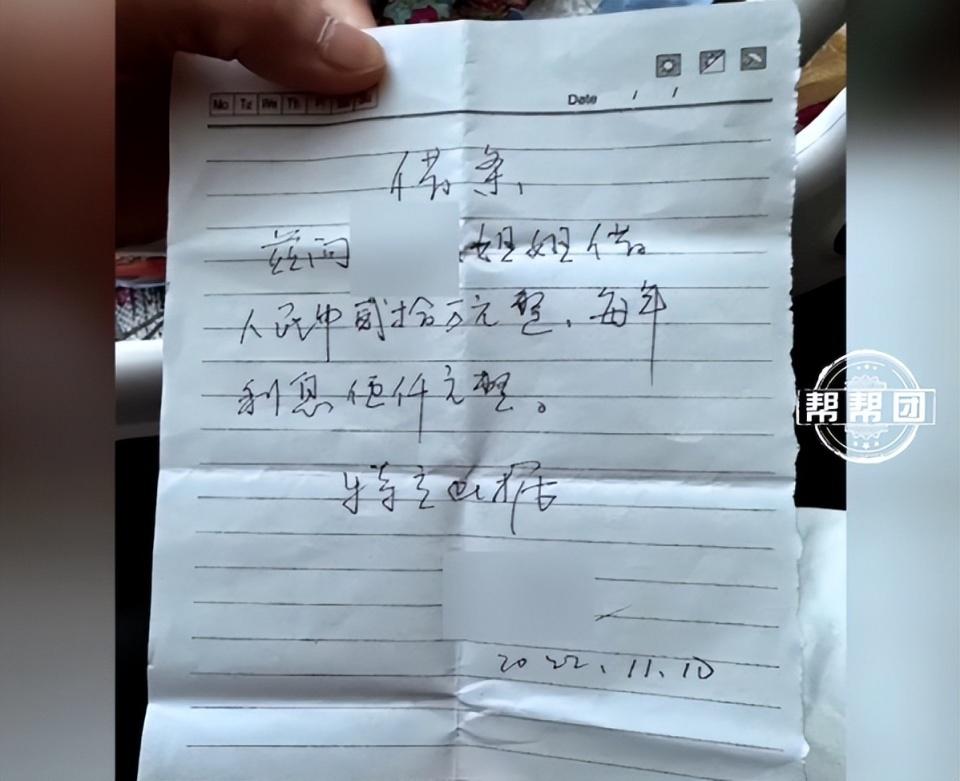 Mo Tu We Th Fr Sa Su
Date / /
借条
兹向 姐姐借
人民币贰拾万元整、每年
利息伍仟元整。
特立此据
2022.11.10
帮帮团